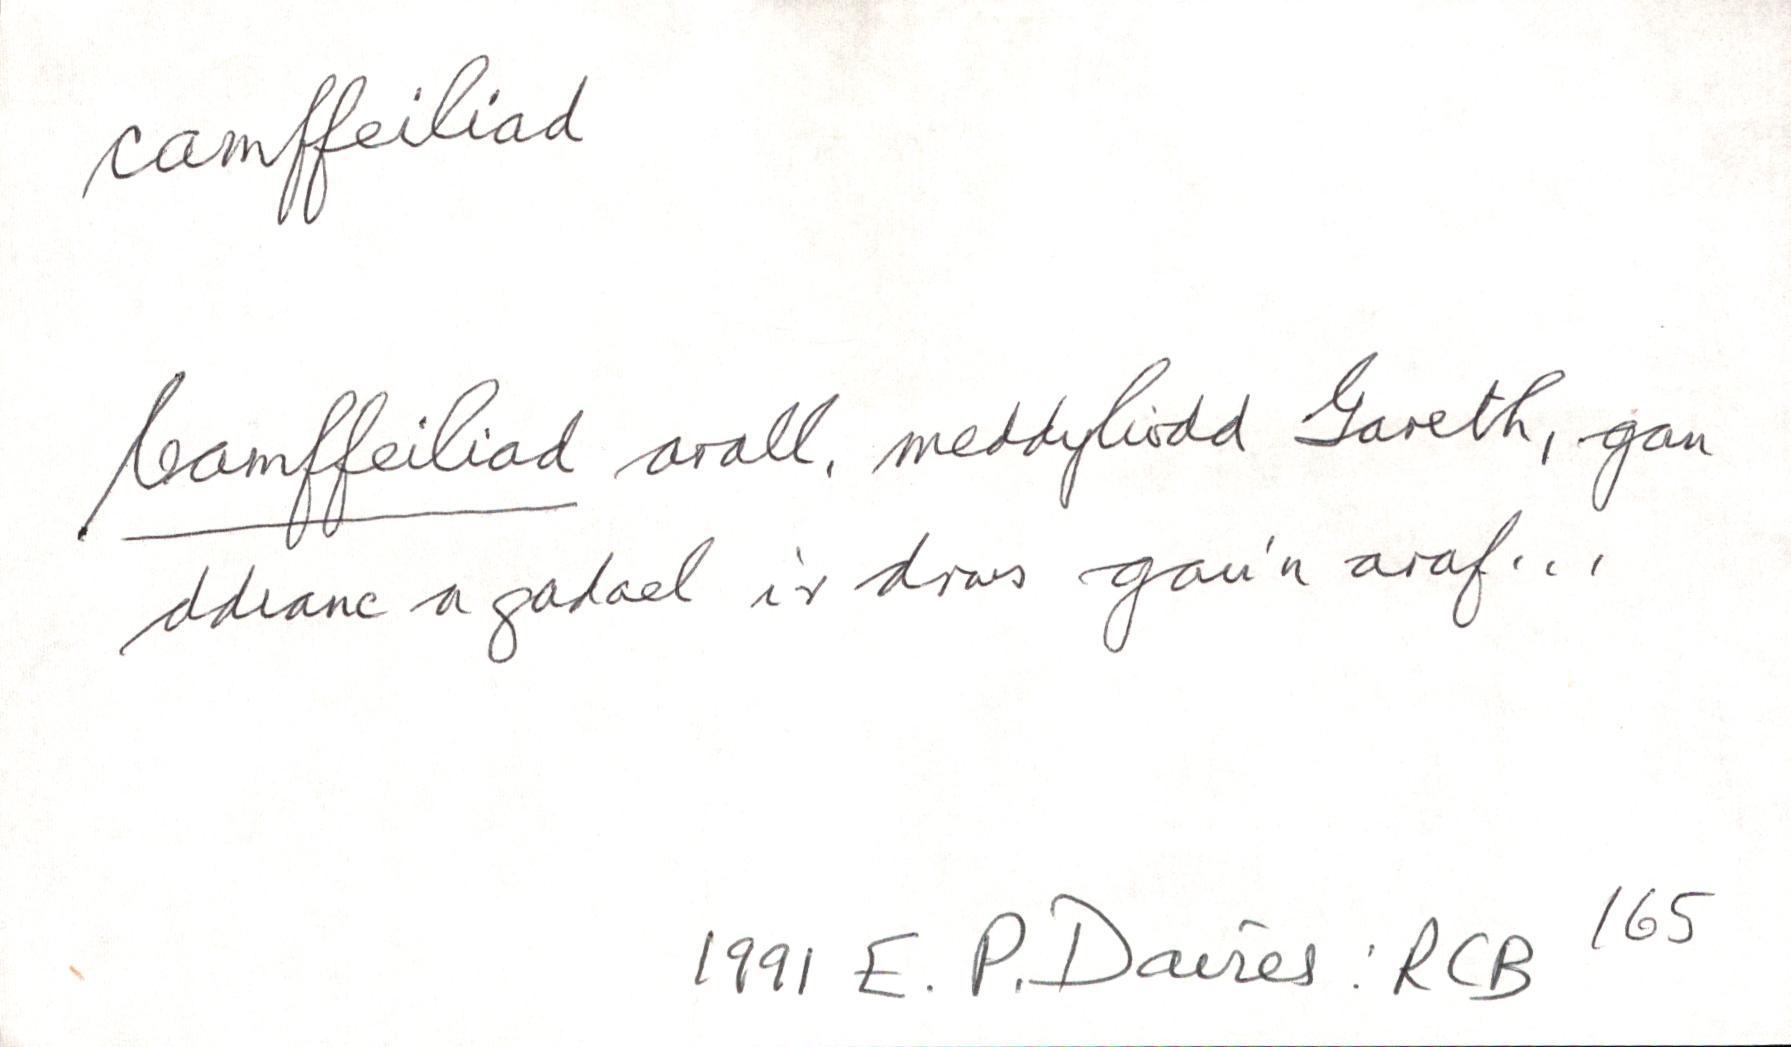 camffeiliad
Camffeiliad arall, meddyliodd Gareth, gan
ddianc a gadael i'r drws gau'n araf...
1991 E. P. Davies : RCB 165